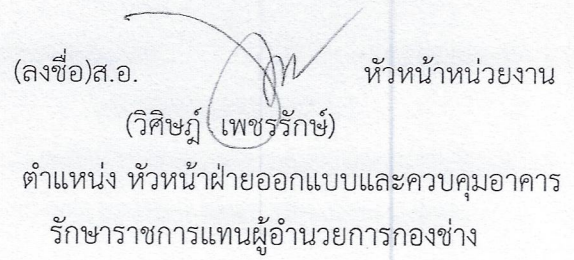 (ลงชื่อ)ส.อ. หัวหน้าหน่วยงาน
(วิศิษฎ์ เพชรรักษ์)
ตำแหน่ง หัวหน้าฝ่ายออกแบบและควบคุมอาคาร
รักษาราชการแทนผู้อำนวยการกองช่าง